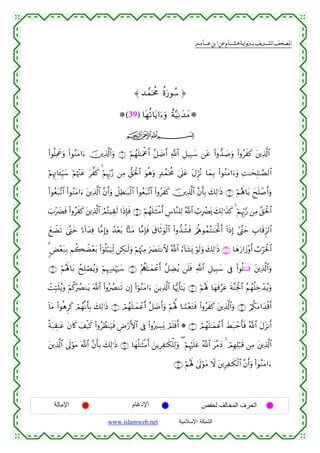 المصحف الشريف برواية هشام عن ابن عامر
﴿ سُورَةُ مُحَمَّدٍ ﴾
۞مَدَنِيَّةٌ وَءَايَاتُهَا (39)۞
بِسْمِ اللَّهِ الرَّحْمَٰنِ الرَّحِيمِ
ٱلَّذِينَ كَفَرُواْ وَصَدُّواْ عَن سَبِيلِ ٱللَّهِ أَضَلَّ أَعْمَٰلَهُمْ ۝ وَٱلَّذِينَ ءَامَنُواْ وَعَمِلُواْ
ٱلصَّٰلِحَٰتِ وَءَامَنُواْ بِمَا نُزِّلَ عَلَىٰ مُحَمَّدٍ وَهُوَ ٱلْحَقُّ مِن رَّبِّهِمْ ۙ كَفَّرَ عَنْهُمْ سَيِّـَٔاتِهِمْ
وَأَصْلَحَ بَالَهُمْ ۝ ذَٰلِكَ بِأَنَّ ٱلَّذِينَ كَفَرُواْ ٱتَّبَعُواْ ٱلْبَٰطِلَ وَأَنَّ ٱلَّذِينَ ءَامَنُواْ ٱتَّبَعُواْ
ٱلْحَقَّ مِن رَّبِّهِمْ ۚ كَذَٰلِكَ يَضْرِبُ ٱللَّهُ لِلنَّاسِ أَمْثَٰلَهُمْ ۝ فَإِذَا لَقِيتُمُ ٱلَّذِينَ كَفَرُواْ فَضَرْبَ
ٱلرِّقَابِ حَتَّىٰٓ إِذَآ أَثْخَنتُمُوهُمْ فَشُدُّواْ ٱلْوَثَاقَ فَإِمَّا مَنًّۢا بَعْدُ وَإِمَّا فِدَآءً حَتَّىٰ تَضَعَ
ٱلْحَرْبُ أَوْزَارَهَا ۝ ذَٰلِكَ وَلَوْ يَشَآءُ ٱللَّهُ لَٱنتَصَرَ مِنْهُمْ وَلَٰكِن لِّيَبْلُوَاْ بَعْضَكُم بِبَعْضٍ ۗ
وَٱلَّذِينَ قَٰتَلُواْ فِى سَبِيلِ ٱللَّهِ فَلَن يُضِلَّ أَعْمَٰلَهُمْ ۝ سَيَهْدِيهِمْ وَيُصْلِحُ بَالَهُمْ ۝
وَيُدْخِلُهُمُ ٱلْجَنَّةَ عَرَّفَهَا لَهُمْ ۝ يَٰٓأَيُّهَا ٱلَّذِينَ ءَامَنُوٓاْ إِن تَنصُرُواْ ٱللَّهَ يَنصُرْكُمْ وَيُثَبِّتْ
أَقْدَامَكُمْ ۝ وَٱلَّذِينَ كَفَرُواْ فَتَعْسًا لَّهُمْ وَأَضَلَّ أَعْمَٰلَهُمْ ۝ ذَٰلِكَ بِأَنَّهُمْ كَرِهُواْ مَآ
أَنزَلَ ٱللَّهُ فَأَحْبَطَ أَعْمَٰلَهُمْ ۝ ۞ أَفَلَمْ يَسِيرُواْ فِى ٱلْأَرْضِ فَيَنظُرُواْ كَيْفَ كَانَ عَٰقِبَةُ
ٱلَّذِينَ مِن قَبْلِهِمْ ۚ دَمَّرَ ٱللَّهُ عَلَيْهِمْ ۖ وَلِلْكَٰفِرِينَ أَمْثَٰلُهَا ۝ ذَٰلِكَ بِأَنَّ ٱللَّهَ مَوْلَى ٱلَّذِينَ
ءَامَنُواْ وَأَنَّ ٱلْكَٰفِرِينَ لَا مَوْلَىٰ لَهُمْ ۝
الحرف المخالف لحفص الإدغام الإمالة
الشبكة الإسلامية www.islamweb.net